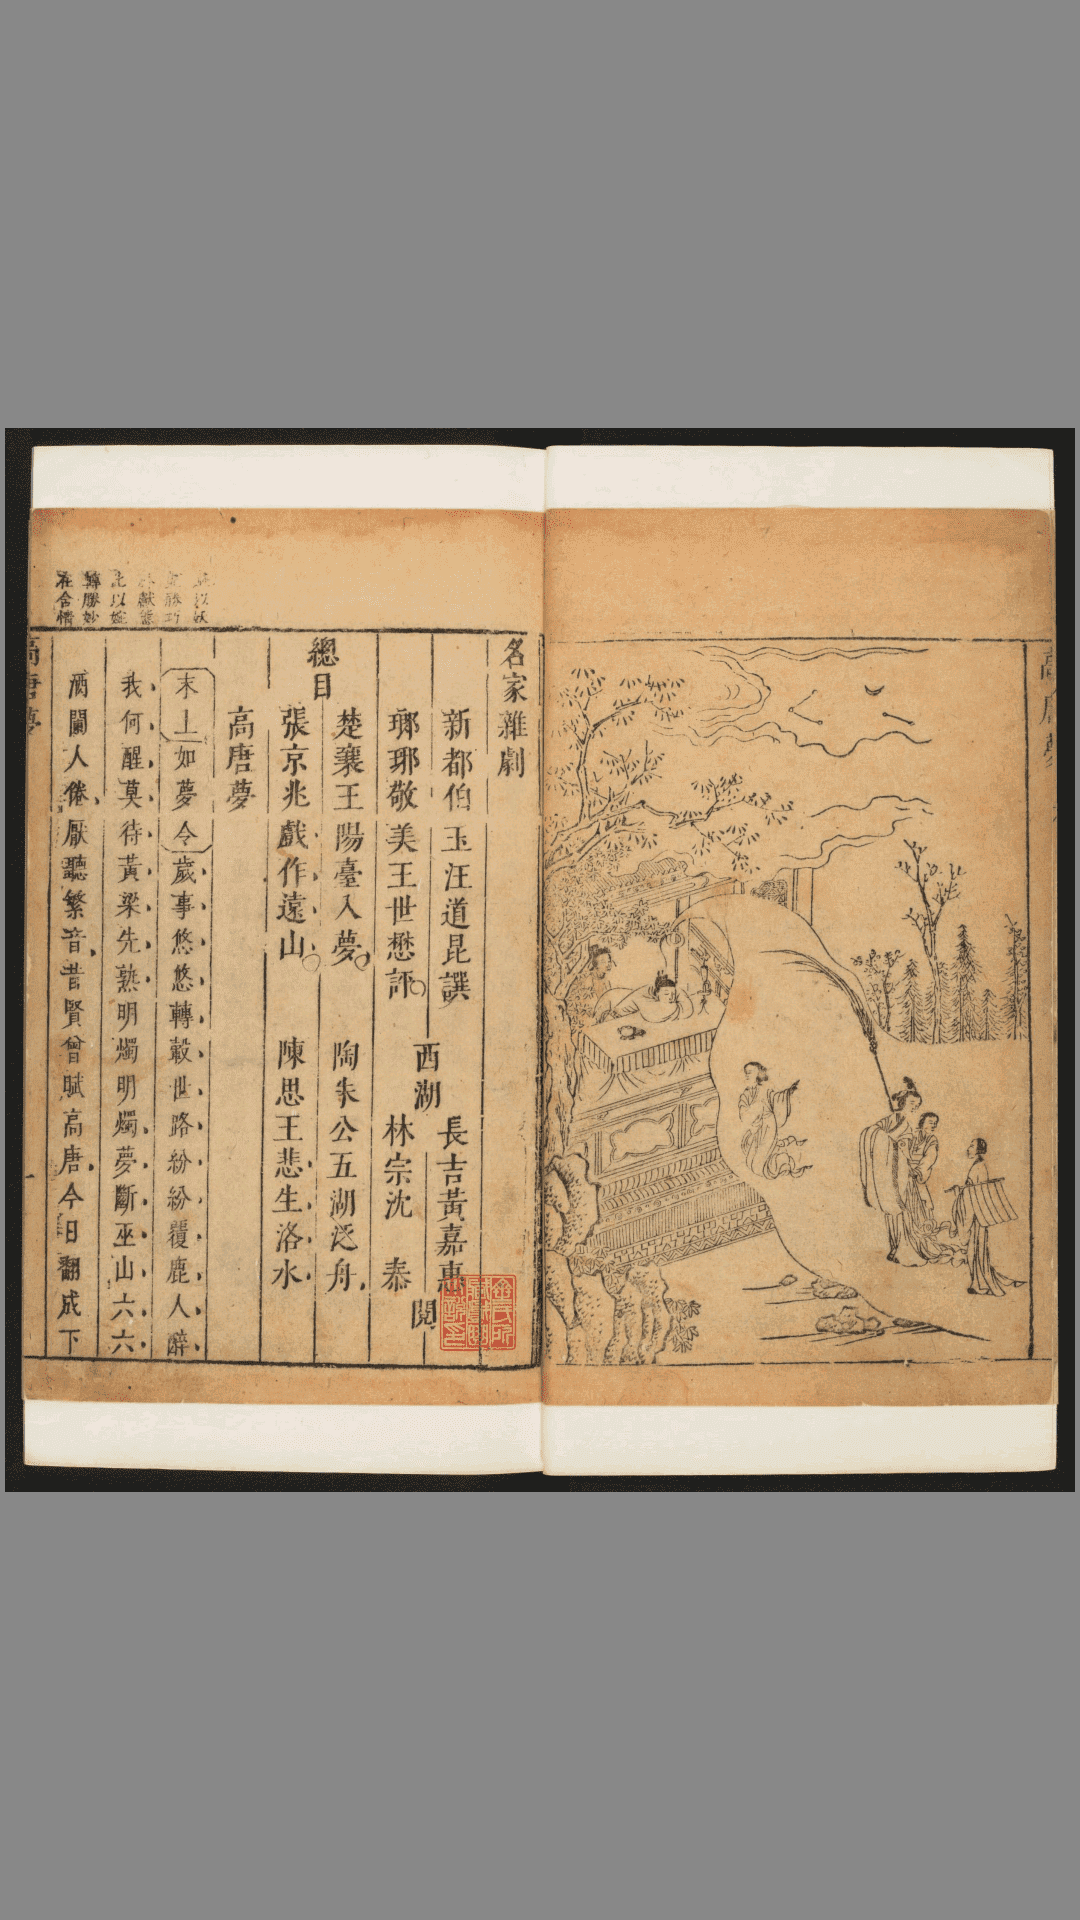 高唐夢
名家雜劇
新都伯玉汪道昆譔
瑯琊敬美王世懋評
西湖
長吉黃嘉惠
林宗沈 泰
閱
總目
楚襄王陽臺入夢 陶朱公五湖泛舟
張京兆戲作遠山 陳思王悲生洛水
高唐夢
末上如夢令歲事悠悠轉轂世路紛紛覆鹿人醉
我何醒莫待黃梁先熟明燭明燭夢斷巫山六六
酒闌人倦厭聽繁音昔賢曾賦高唐今日翻成下
以妖
獻態
此以婉
轉勝妙
在含情
高唐夢